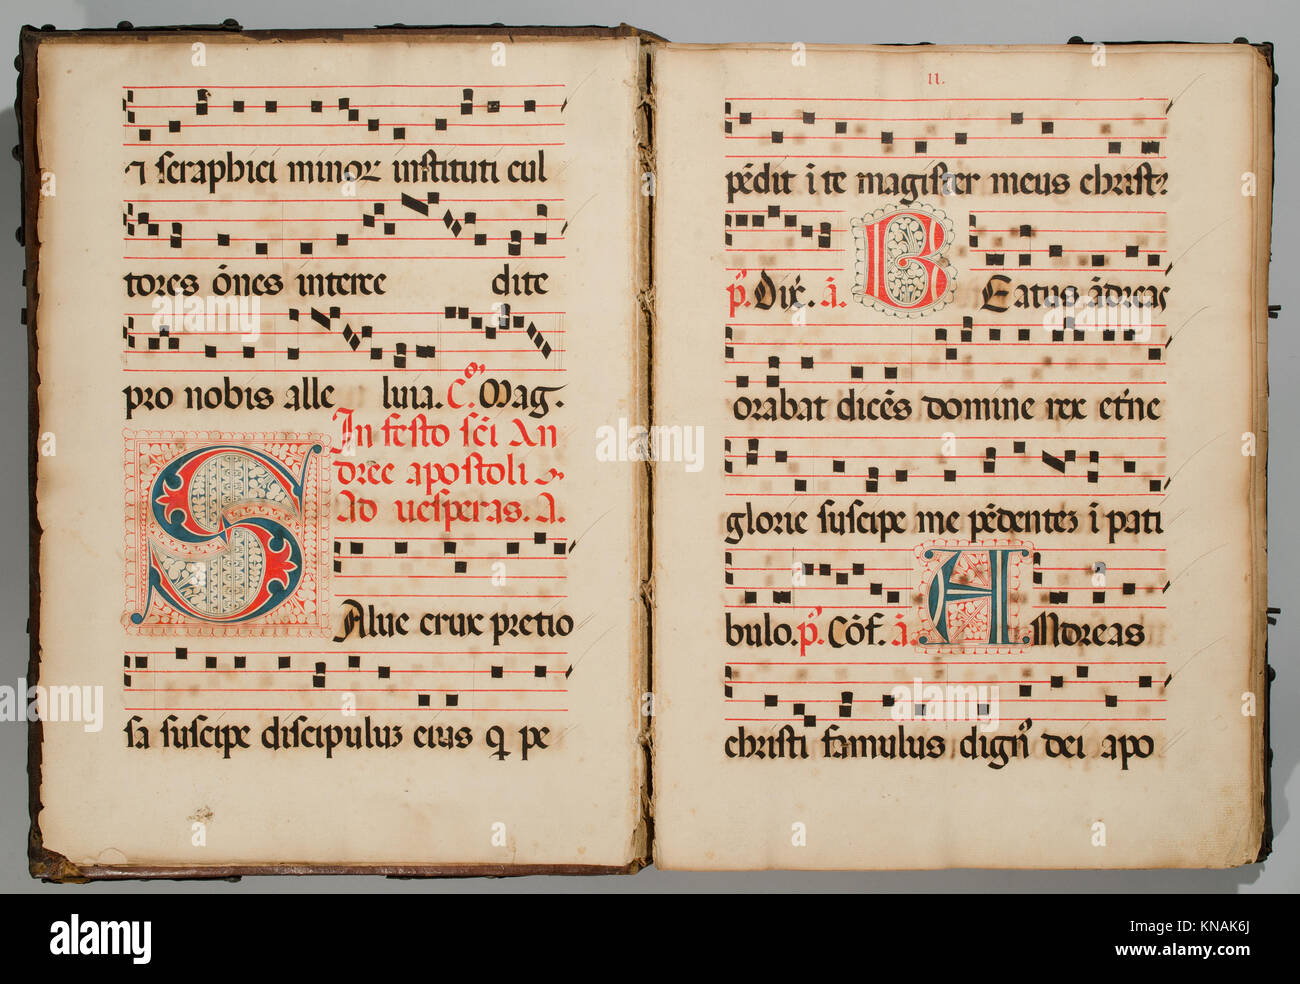 ⁊ seraphici minoꝝ instituti cul
tores õnes interce dite
pro nobis alle luia. Cō. Mag.
In festo scī An
dree apostoli
Ad uesperas. A.
Salue crux pretio
sa suscipe discipulũ eius q pe
II.
pēdit ī te magister meus christꝰ
p̄. Dix̄. ā. BEatus ādreas
orabat dicēs domine rex etīne
glorie suscipe me pēdentez ī pati
bulo. p̄. Cōf. ā. ANdreas
christi famulus dignꝰ dei apo
alamy
Image ID: KNAK6J
www.alamy.com